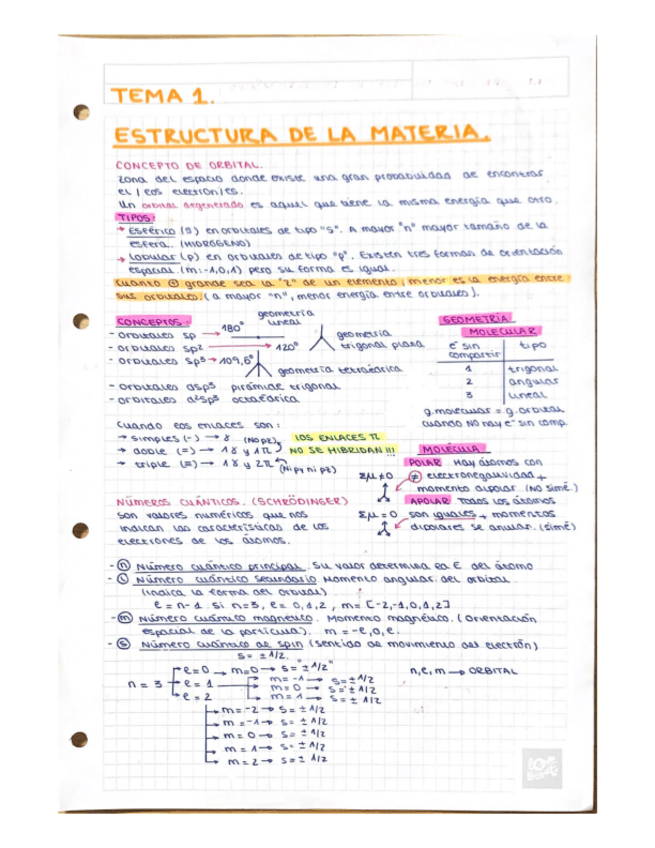 TEMA 1.
ESTRUCTURA DE LA MATERIA.
CONCEPTO DE ORBITAL.
Zona del espacio donde existe una gran probabilidad de encontrar
el / los electrón/es.
Un orbital degenerado es aquel que tiene la misma energía que otro.
TIPOS:
→ Esférico (s) en orbitales de tipo "s". A mayor "n" mayor tamaño de la
esfera. (HIDRÓGENO)
→ Lobular (p) en orbitales de tipo "p". Existen tres formas de orientación
espacial. (m: -1, 0, 1) pero su forma es igual.
Cuanto + grande sea la "Z" de un elemento, menor es la energía entre
sus orbitales. (a mayor "n", menor energía entre orbitales).
CONCEPTOS:
- Orbitales sp → 180° geometría lineal
- Orbitales sp2 → 120° geometría trigonal plana
- Orbitales sp3 → 109,6° geometría tetraédrica
- orbitales dsp3 pirámide trigonal
- orbitales d2sp3 octaédrica
GEOMETRÍA
MOLECULAR
e- sin compartir | tipo
1 | trigonal
2 | angular
3 | lineal
g. molecular = g. orbital
cuando NO hay e- sin comp.
Cuando los enlaces son:
→ simples (-) → 1 γ (No pz)
→ doble (=) → 1 γ y 1 π
→ triple (≡) → 1 γ y 2 π (Ni py ni pz)
LOS ENLACES π
NO SE HIBRIDAN!!!
MOLÉCULA
POLAR Hay átomos con
Σμ ≠ 0 ≠ electronegatividad +
momento dipolar (NO simé.)
APOLAR Todos los átomos
Σμ = 0 son iguales + momentos
dipolares se anulan. (simé)
NÚMEROS CUÁNTICOS. (SCHRÖDINGER)
Son valores numéricos que nos
indican las características de los
electrones de los átomos.
- (n) Número cuántico principal. Su valor determina la E del átomo
- (l) Número cuántico secundario Momento angular del orbital
(indica la forma del orbital)
l = n-1. si n=3, l = 0, 1, 2, m = [-2,-1,0,1,2]
- (m) Número cuántico magnético. Momento magnético. (Orientación
espacial de la partícula). m = -l, 0, l.
- (s) Número cuántico de spin (sentido de movimiento del electrón)
s = ± 1/2.
n = 3
l = 0 → m=0 → s = ± 1/2
l = 1 → m = -1 → s = ± 1/2
m = 0 → s = ± 1/2
m = 1 → s = ± 1/2
l = 2
m = -2 → s = ± 1/2
m = -1 → s = ± 1/2
m = 0 → s = ± 1/2
m = 1 → s = ± 1/2
m = 2 → s = ± 1/2
n, l, m → ORBITAL